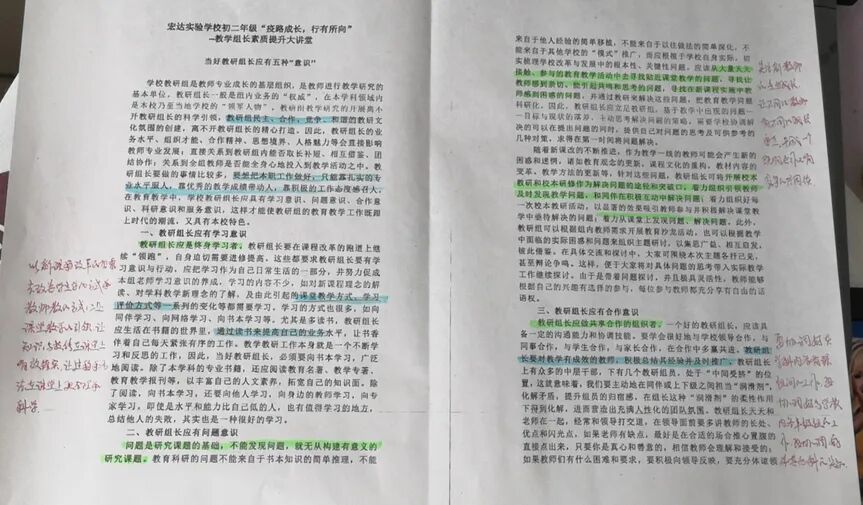 宏达实验学校初二年级“疫路成长，行有所向”
—教学组长素质提升大讲堂
当好教研组长应有五种“意识”
学校教研组是教师专业成长的基层组织，是教师进行教学研究的
基本单位，教研组长一般是组内业务的“权威”，在本学科领域内
是本校乃至当地学校的“领军人物”。教研组教学研究的开展离不
开教研组长的科学引领，教研组民主、合作、竞争、和谐的教研文
化氛围的创建，离不开教研组长的精心打造。因此，教研组长的业
务水平、组织才能、合作精神、思想境界、人格魅力等会直接影响
教师专业发展；直接关系到教研组内能否取长补短、相互借鉴、团
结协作；关系到全组教师是否能全身心地投入到教学活动之中。教
研组长要做的事情比较多，要想把本职工作做好，只能靠扎实的专
业水平服人，靠优秀的教学成绩带动人，靠积极的工作态度感召人。
在教育教学中，学校教研组长应具有学习意识、问题意识、合作意
识、科研意识和服务意识，这样才能使教研组的教育教学工作既跟
上时代的潮流，又具有本校特色。
一、教研组长应有学习意识
教研组长应是终身学习者。教研组长要在课程改革的跑道上继
续“领跑”，自身迫切需要进修提高。这些都要求教研组长要有学
习意识与行动，应把学习作为自己日常生活的一部分，并努力促成
本组老师学习意识的养成。学习的内容不少，如对新课程理念的解
读、对学科教学新理念的了解、及由此引起的课堂教学方式、学习
评价方式等一系列的变化等都需要学习，学习的方式也很多，如向
同伴学习、向网络学习、向书本学习等。尤其是多读书，教研组长
应生活在书籍的世界里，通过读书来提高自己的业务水平，让书香
伴着自己每天紧张有序的工作。教学教研工作本身就是一个不断学
习和反思的工作，因此，当好教研组长，必须要向书本学习，广泛
地阅读。除了本学科的专业书籍，还应阅读教育名著、教学专著、
教育教学报刊等，以丰富自己的人文素养，拓宽自己的知识面。除
了阅读，向书本学习，还要向他人学习，向身边的教师学习，向专
家学习，即使是水平和能力比自己低的人，也有值得学习的地方，
总结他人的失败，其实也是一种很好的学习。
二、教研组长应有问题意识
问题是研究课题的基础，不能发现问题，就无从构建有意义的
研究课题。教育科研的问题不能来自于书本知识的简单推理，不能
来自于他人经验的简单移植，不能来自于以往做法的简单深化，不
能来自于其他学校的“模式”，而应植根于学校自身实际，切
实梳理学校改革与发展中的根本性、关键性问题。应该从大量天天
接触、参与的教育教学活动中去寻找贴近课堂教学的问题，寻找让
教师感到亲切、能引起共鸣和思考的问题，寻找在新课程实施中教
师感到困惑的问题，并通过教研来解决这些问题，把教育教学同题
科研化。因此，教研组长应立足教研组，基于教学中出现的问题—
—目标与现状的落差，主动思考解决问题的策略，需要学校协调解
决的可以在提出问题的同时，提供自己对问题的思考及可供参考的
几种对策，求得在第一时间将问题解决。
随着新课改的不断推进，作为教学一线的教师可能会产生新的
困惑和迷惘，诸如教育观念的更新、课程文化的重构、教材内容的
变革、教学方法的更新等，针对这些问题，教研组长可将开展校本
教研和校本研修作为解决问题的途径和突破口，着力组织引领教师
及时发现教学问题，和同伴在积极互动中解决问题；着力组织好每
一次校本教研活动，以显著的效果吸引教师参与并积极解决课堂教
学中亟待解决的问题；着力从课堂上发现问题、解决问题。此外，
教研组可以根据组内教师需求开展教育沙龙活动，也可以根据教学
中面临的实际困惑和问题来组织主题研讨，以集思广益、相互启发、
彼此借鉴。在具体交流和探讨中，大家可围绕本次主题各抒己见，
甚至辩论争鸣。这样，便于大家将对具体问题的思考带入实际教学
工作继续探讨。由于是靠着问题探讨，并且极具灵活性，教师能够
根据自己的兴趣有选择的参与，每位参与教师都充分享有自由的话
语权。
三、教研组长应有合作意识
教研组长应做共享合作的组织者。一个好的教研组长，应该具
备一定的沟通能力和协调技能。要学会很好地与学校领导合作，与
同事合作，与学生合作，与家长合作，在合作中多赢共进。教研组
长要对教学有成效的教师，积极总结其经验并及时推广。教研组长
上有众多的中层干部，下有几个教研组员，处于“中间受挤”的位
置，这就意味着，我们要主动地在同伴或上下级之间担当“润滑剂”，
化解矛盾，提升组员的归宿感，在组长这种“润滑剂”的柔性作用
下得到化解，进而营造出充满人性化的团队氛围。教研组长天天和
老师在一起，经常和领导打交道，在领导面前要多讲教师的长处、
优点和闪光点，如果老师有缺点，最好是在合适的场合推心置腹的
直接点出来，只要你是真心和善意的，相信教师会理解和接受的；
如果教师们有什么困难和要求，要积极向领导反映，要充分体谅领